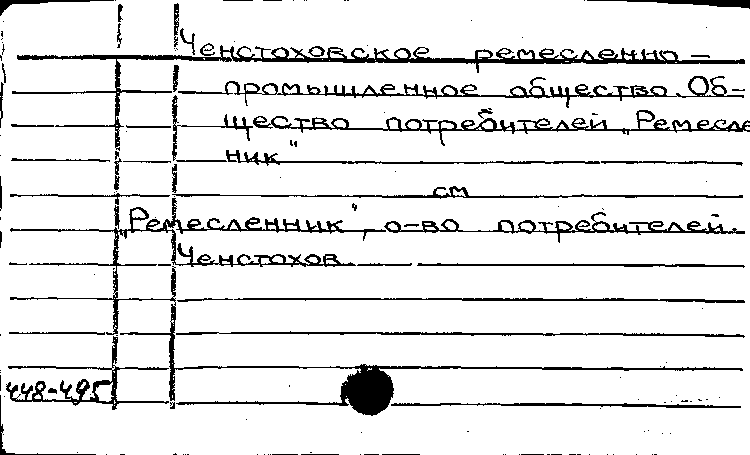 Ченстоховское ремесленно-
промышленное общество. Об-
щество потребителей „Ремесле
ник"
см
„Ремесленник", о-во потребителей.
Ченстохов.
448-495